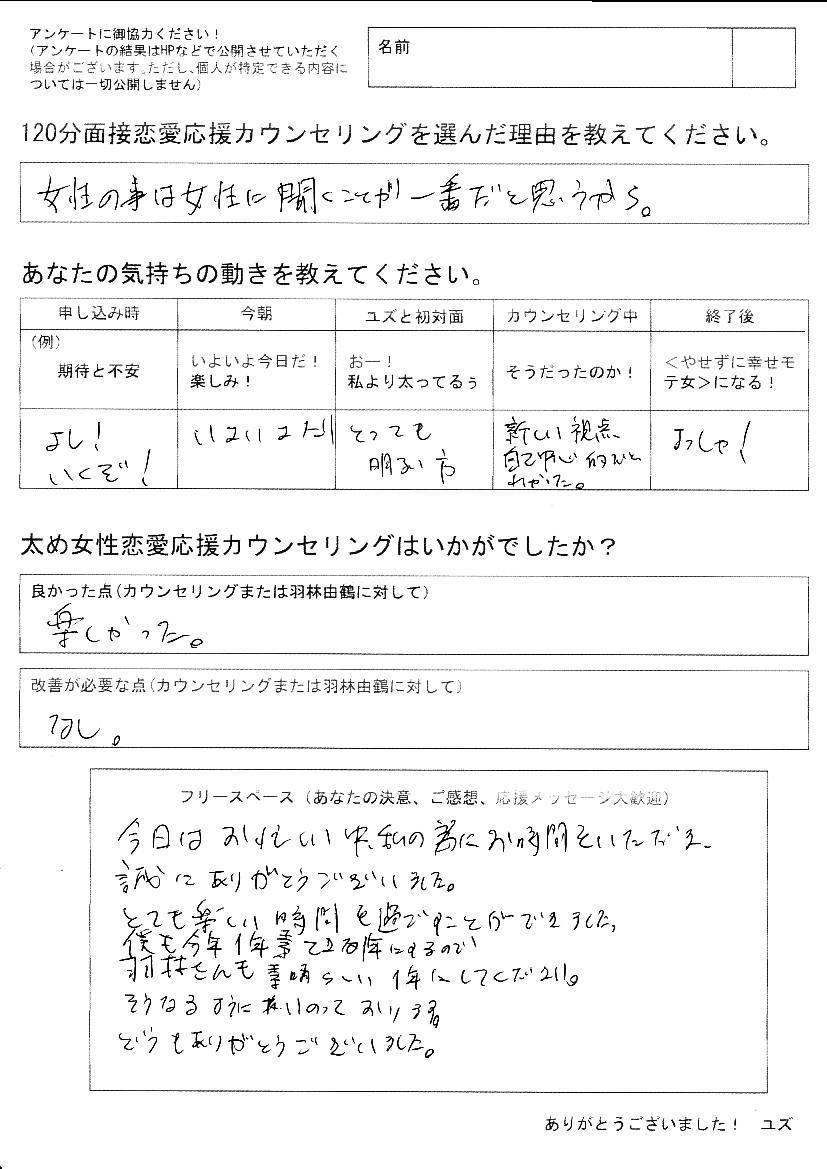 アンケートに御協力ください！
（アンケートの結果はHPなどで公開させていただく
場合がございます。ただし、個人が特定できる内容に
ついては一切公開しません）
名前
120分面接恋愛応援カウンセリングを選んだ理由を教えてください。
女性の事は女性に聞くことが一番だと思うから。
あなたの気持ちの動きを教えてください。
申し込み時 今朝 ユズと初対面 カウンセリング中 終了後
（例）
期待と不安
いよいよ今日だ！
楽しみ！
おー！
私より太ってるぅ
そうだったのか！
＜やせずに幸せモ
テ女＞になる！
よし！
いくぞ！
いよいよだ
とっても
明るい方
新しい視点、
自己中心的だと
わかった。
よっしゃ！
太め女性恋愛応援カウンセリングはいかがでしたか？
良かった点（カウンセリングまたは羽林由鶴に対して）
楽しかった。
改善が必要な点（カウンセリングまたは羽林由鶴に対して）
なし。
フリースペース（あなたの決意、ご感想、応援メッセージ大歓迎）
今日はお忙しい中、私の為にお時間をいただき、
誠にありがとうございました。
とても楽しい時間を過ごすことができました。
僕も今年1年素てきな年にするので
羽林さんも素晴らしい1年にしてください。
そうなるように祈っております。
どうもありがとうございました。
ありがとうございました！ ユズ